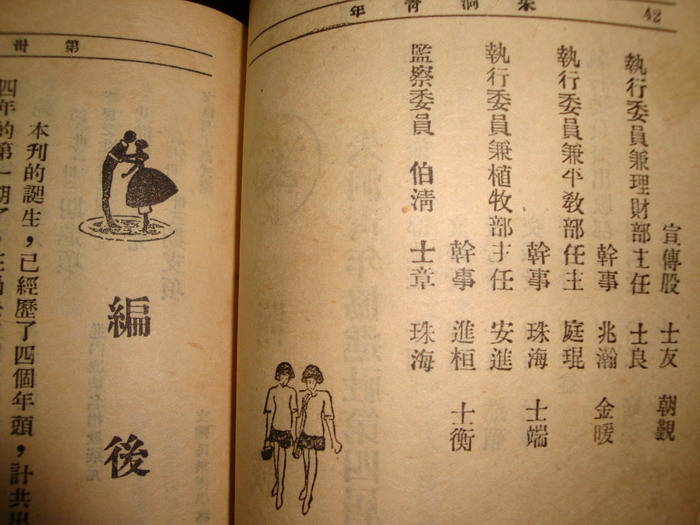 42
年 青 洞 茶
宣傳股 士友 朝觀
執行委員兼理財部主任 士良
幹事 兆瀚 金暖
執行委員兼平敎部任主 庭琨
幹事 珠海 士端
執行委員兼植牧部主任 安進
幹事 進桓 士衡
監察委員 伯清 士章 珠海
第 卌
編後
本刊的誕生，已經歷了四個年頭，計共出
四年的第一期了，在